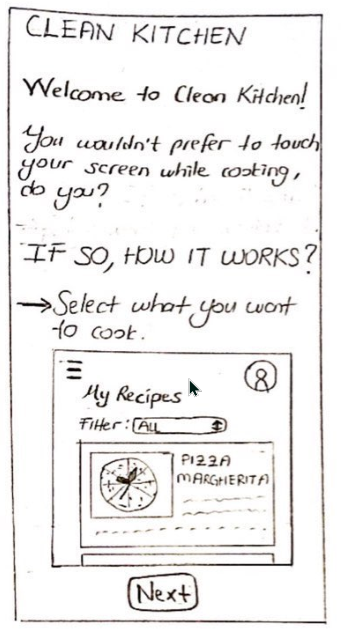 CLEAN KITCHEN
Welcome to Clean Kitchen!
You wouldn't prefer to touch
your screen while cooking,
do you?
IF SO, HOW IT WORKS?
→Select what you want
to cook.
My Recipes
Filter: ALL
PIZZA
MARGHERITA
Next